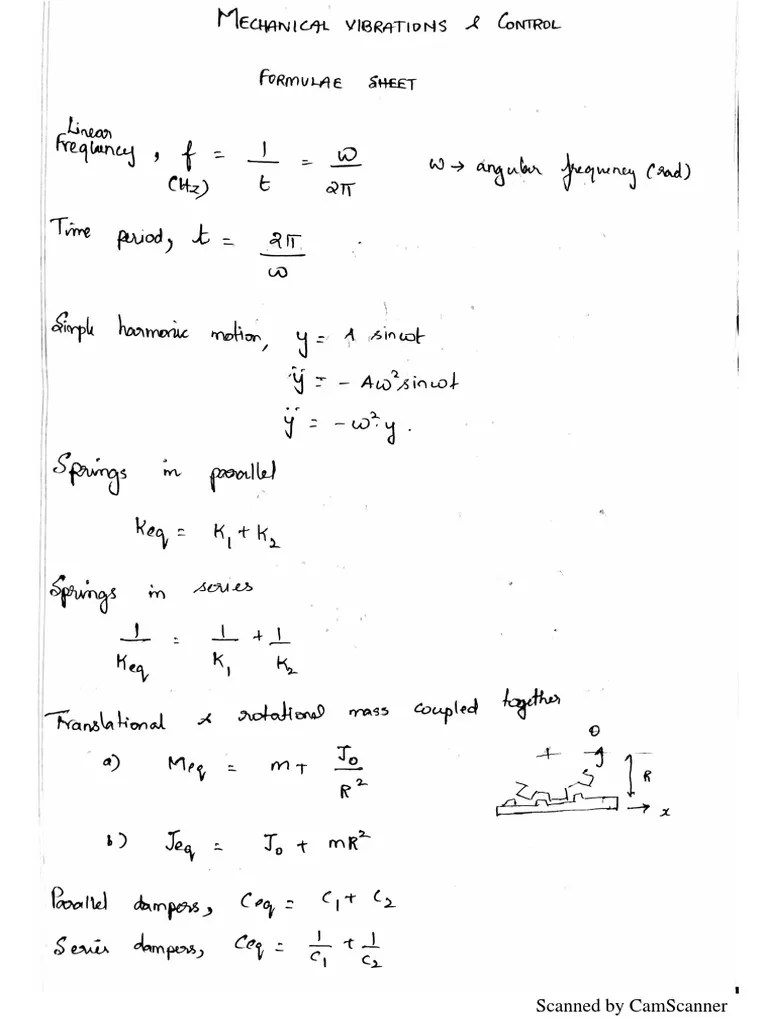 MECHANICAL VIBRATIONS & CONTROL
FORMULAE SHEET
Linear
Frequency, f = 1/t = ω/2π ω → angular frequency (rad)
(Hz)
Time period, t = 2π/ω
Simple harmonic motion, y = A sinωt
ÿ = - Aω² sinωt
ÿ = - ω² y.
Springs in parallel
Keq = K₁ + K₂
Springs in series
1/Keq = 1/K₁ + 1/K₂
Translational & rotational mass coupled together
a) Meq = m + J₀/R²
θ
R
x
b) Jeq = J₀ + mR²
Parallel dampers, Ceq = C₁ + C₂
Series dampers, Ceq = 1/C₁ + 1/C₂
Scanned by CamScanner